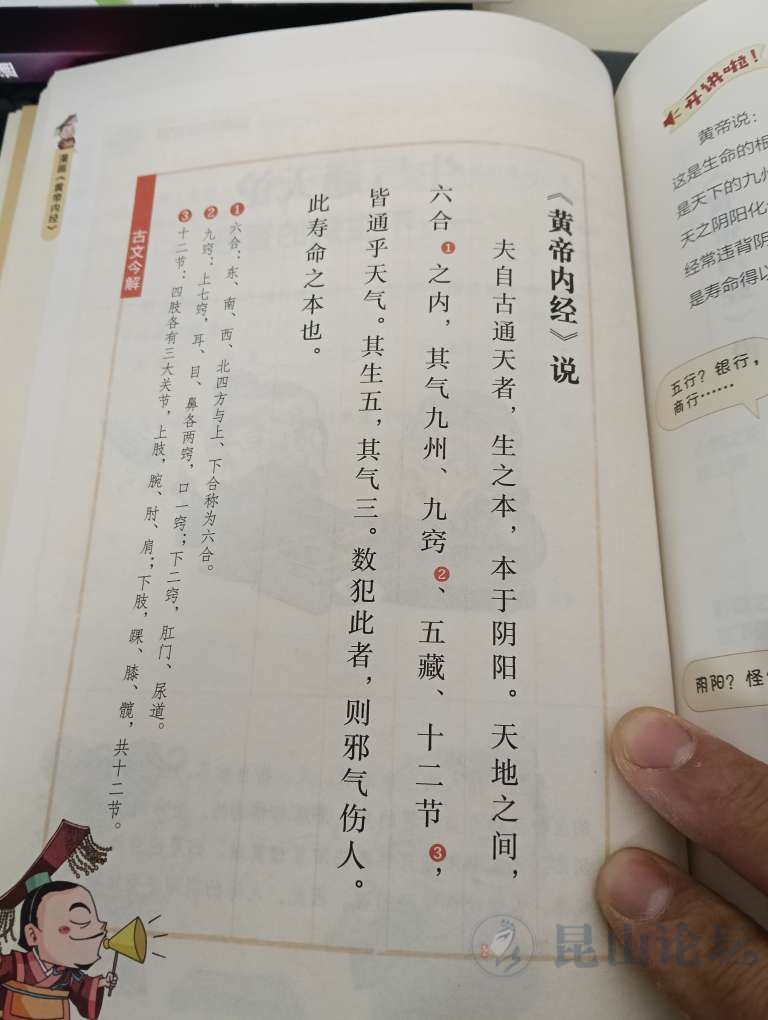 漫画《黄帝内经》
《黄帝内经》说
夫自古通天者，生之本，本于阴阳。天地之间，
六合❶之内，其气九州、九窍❷、五藏、十二节❸，
皆通乎天气。其生五，其气三。数犯此者，则邪气伤人。
此寿命之本也。
古文今解
❶六合：东、南、西、北四方与上、下合称为六合。
❷九窍：上七窍，耳、目、鼻各两窍，口一窍；下二窍，肛门、尿道。
❸十二节：四肢各有三大关节，上肢，腕、肘、肩；下肢，踝、膝、髋，共十二节。
开讲啦！
黄帝说：
这是生命的根
是天下的九州
天之阴阳化
经常违背阴
是寿命得以
五行？银行，
商行……
阴阳？怪
昆山论坛